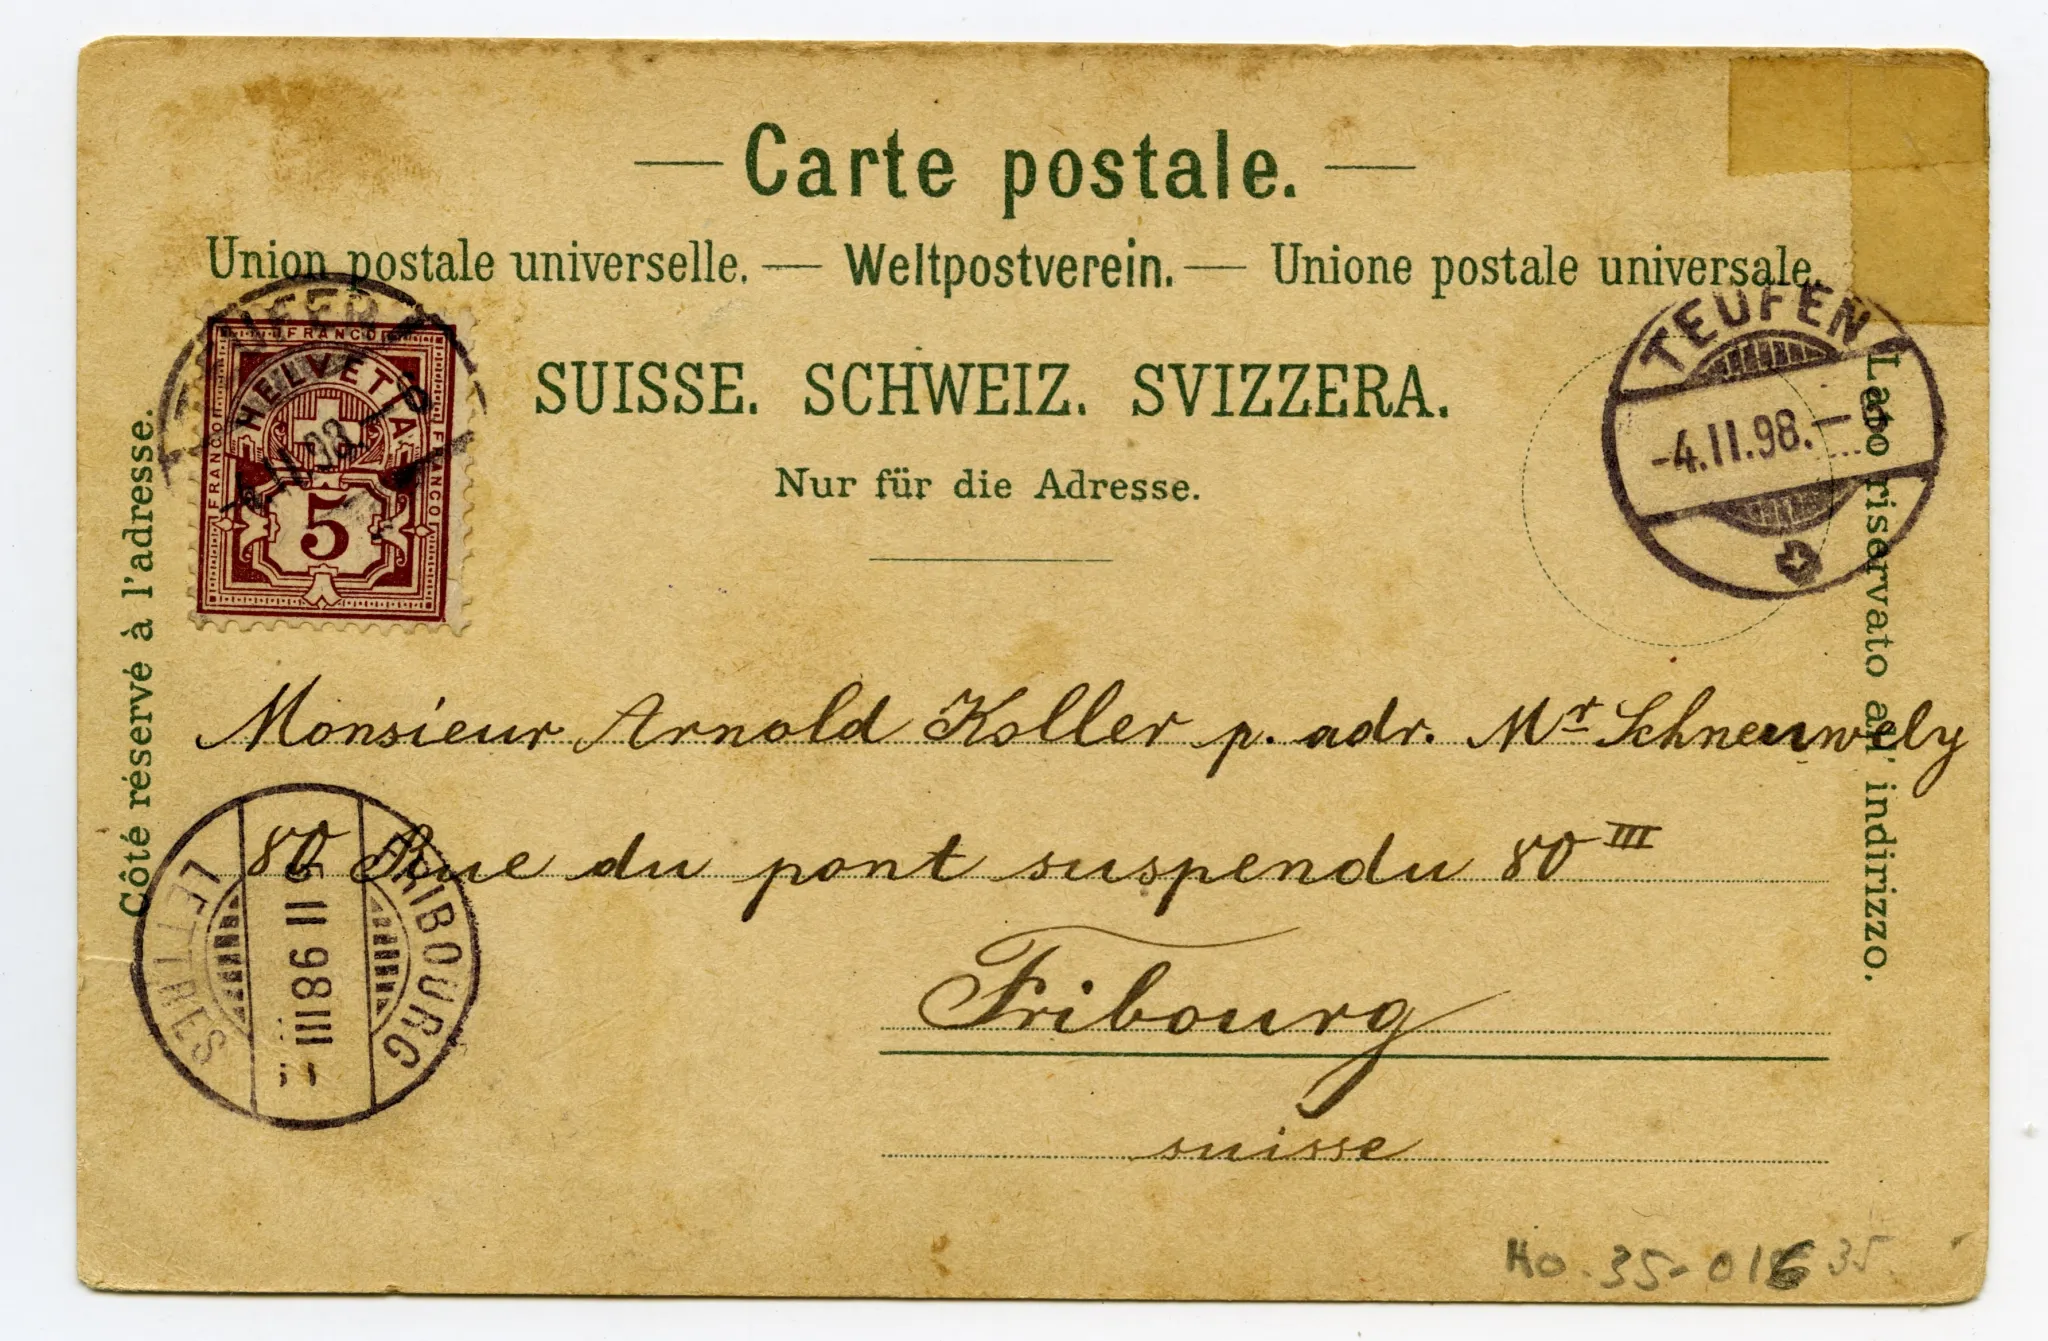 — Carte postale. —
Union postale universelle. — Weltpostverein. — Unione postale universale.
SUISSE. SCHWEIZ. SVIZZERA.
Nur für die Adresse.
Côté réservé à l'adresse.
Lato riservato all' indirizzo.
FRANCO
FRANCO
FRANCO
HELVETIA
5
TEUFEN
-4.II.98.-6
TEUFEN
-4.II.98.-
Monsieur Arnold Koller p. adr. Mr Schneuwely
80 Rue du pont suspendu 80 III
Fribourg
suisse
FRIBOURG
II 98 III
LETTRES
Ho. 35-016 35